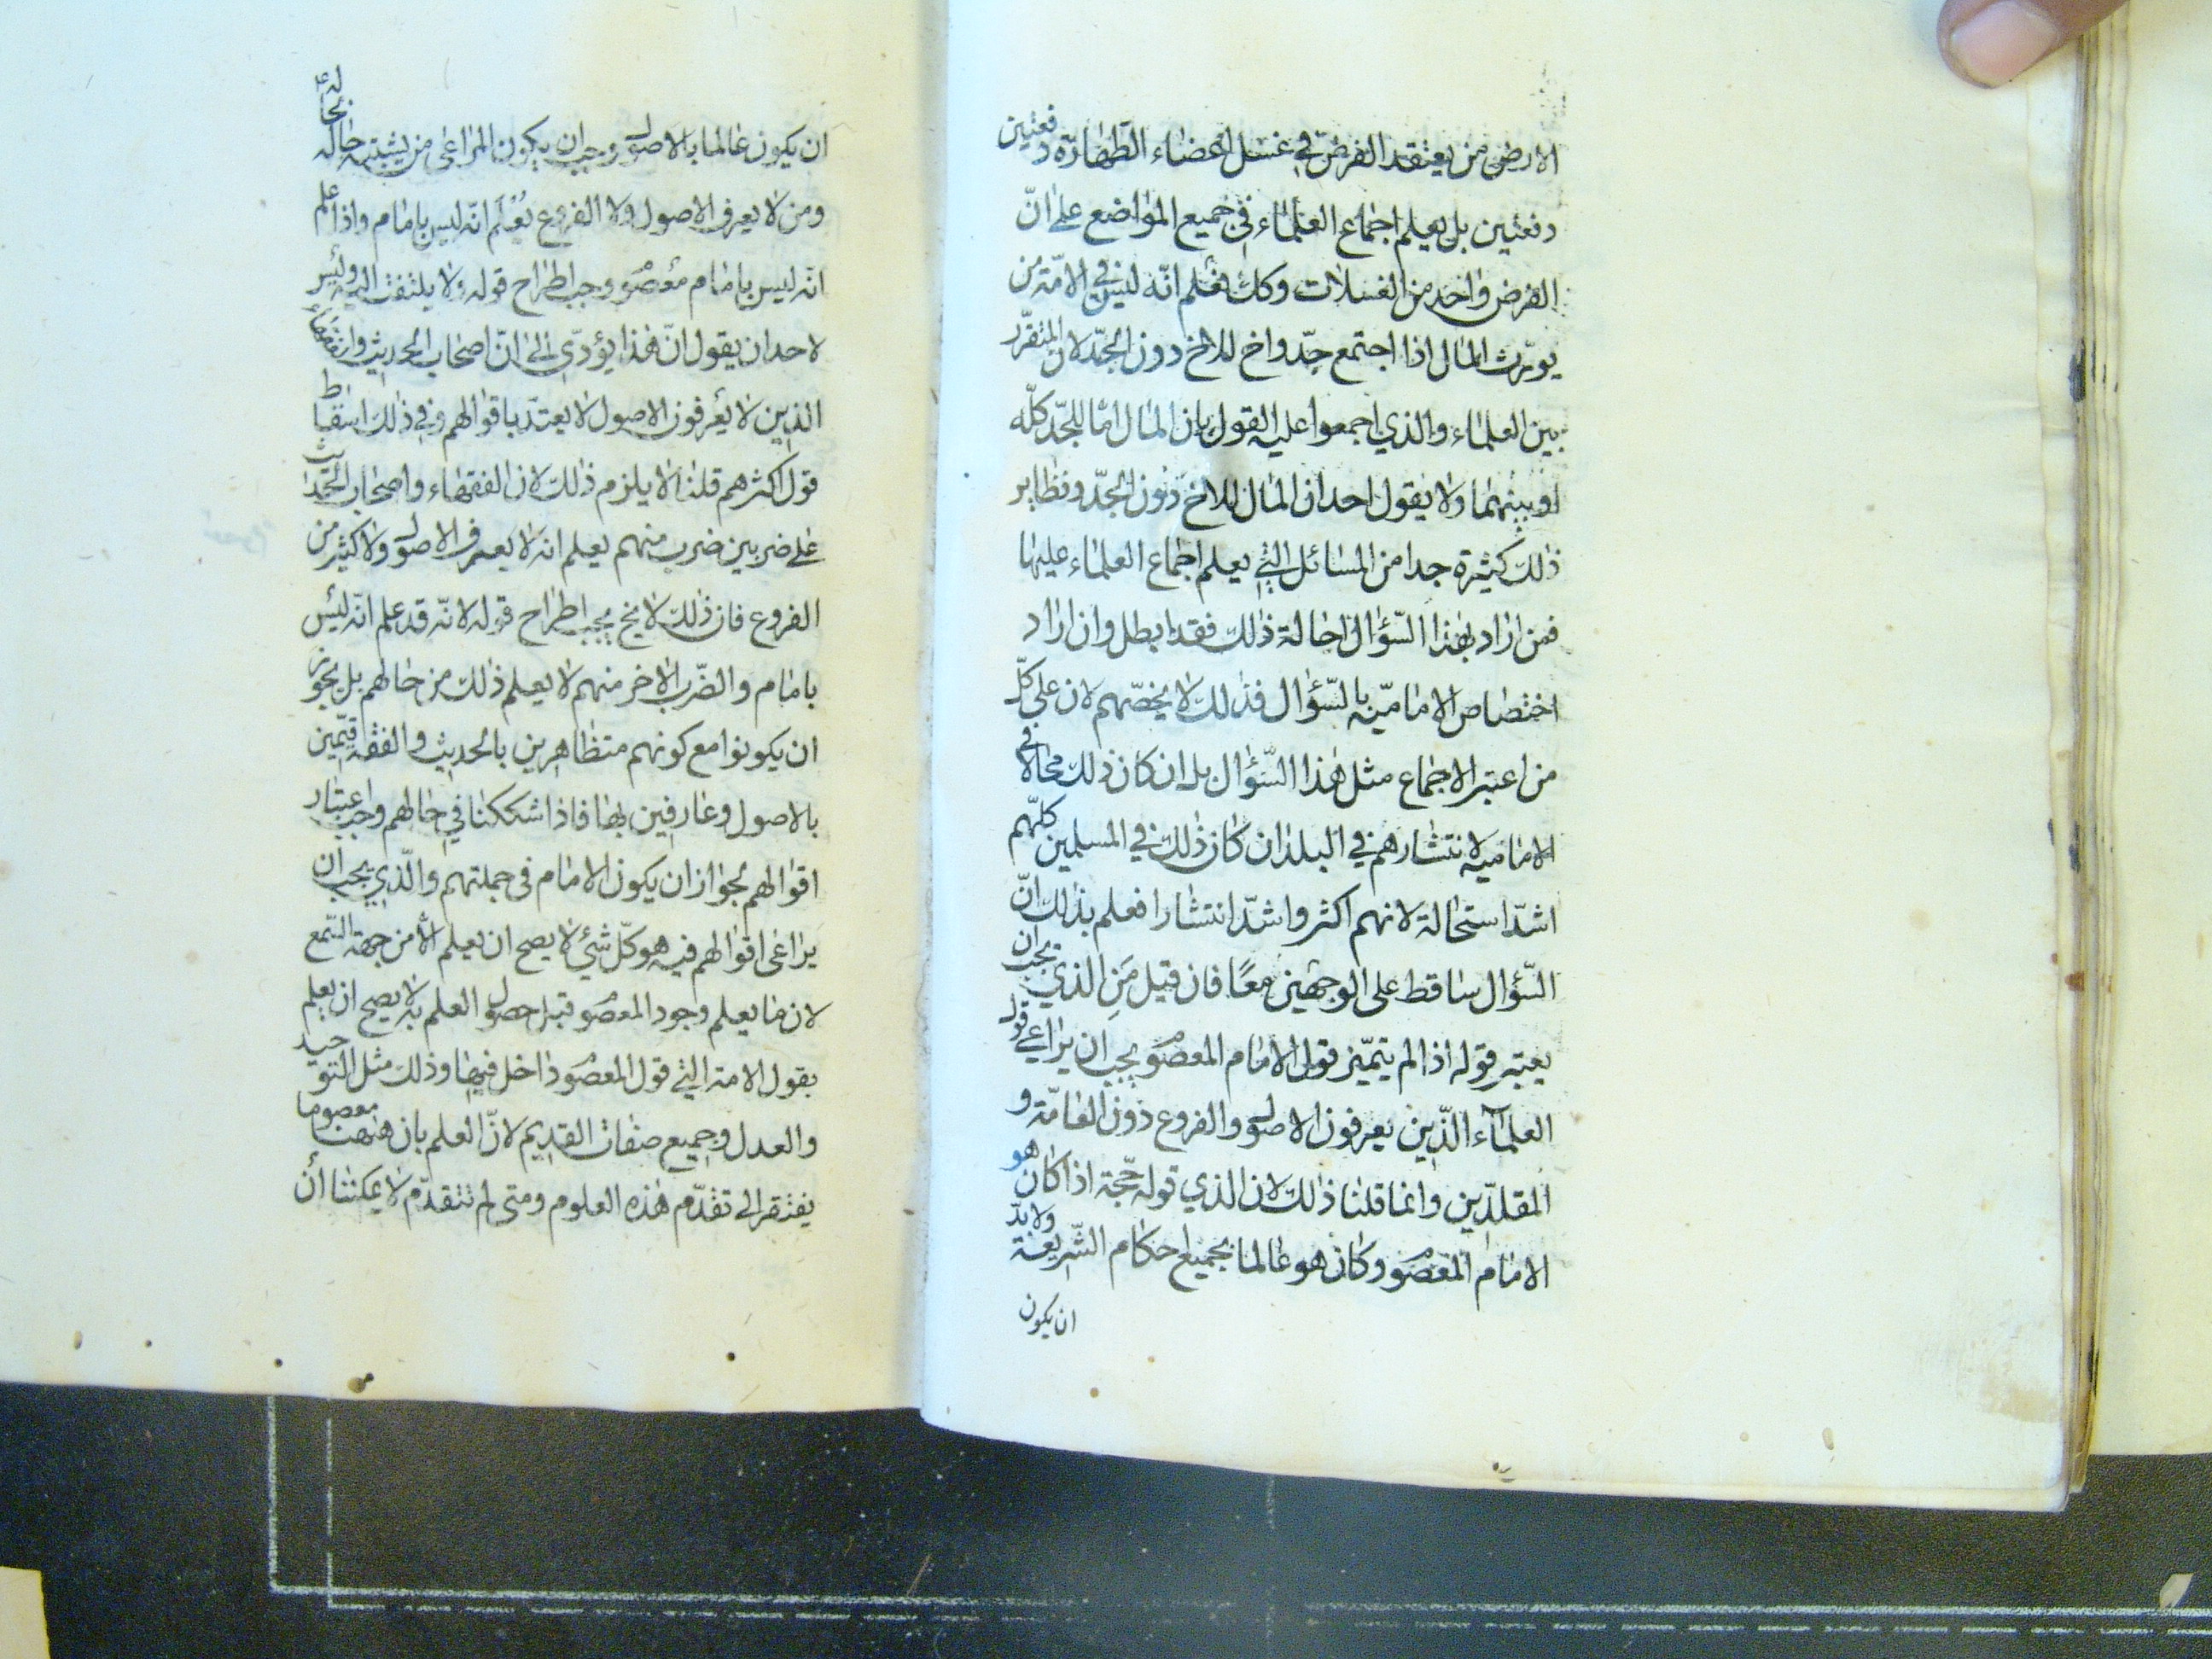 الارض من يعتقد الفرض في غسل اعضاء الطهارة دفعتين
دفعتين بل يعلم اجماع العلماء في جميع المواضع على انّ
الفرض واحد من الغسلات وكك نعلم انّه ليس في الامّة من
يورث المال اذا اجتمع جدّ واخ للاخ دون الجدّ لان المتقرّر
بين العلماء والذي اجمعوا عليه القول بان المال امّا للجدّ كلّه
او بينهما ولا يقول احد ان المال للاخ دون الجدّ ونظاير
ذلك كثيرة جدا من المسائل التي يعلم اجماع العلماء عليها
فمن اراد بهذا السّؤال احالة ذلك فقد ابطل وان اراد
اختصاص الاماميّة بالسّؤال فذلك لا يخصّهم لان على كلّ
من اعتبر الاجماع مثل هذا السّؤال بل ان كان ذلك محالا في
الاماميه لانتشارهم في البلدان كان ذلك في المسلمين كلّهم
اشدّ استحالة لانهم اكثر واشدّ انتشارا فعلم بذلك انّ
السّؤال ساقط على الوجهين معًا فان قيل مَنِ الذي يجب ان
يعتبر قوله اذا لم يتميّز قول الامام المعصوم يجب ان يراعي قول
العلماء الّذين يعرفون الاصول والفروع دون العامّة و
المقلدّين وانما قلنا ذلك لان الذي قوله حجّة اذا كان هو
الامام المعصوم وكان هو عالما بجميع احكام الشّريعة ولا بدّ
ان يكون
ان يكون عالما بالاصول وجب ان يكون المراعى من يشتبه حاله بحاله ع
ومن لا يعرف الاصول ولا الفروع يُعْلَم انّه ليس بامام واذا علم
انّه ليس بامام معصوم وجب اطراح قوله ولا يلتفت اليه وليس
لاحد ان يقول انّ هذا يؤدّي الى انّ اصحاب الحديث والفقهاء
الذين لا يعرفون الاصول لا يعتدّ باقوالهم وفي ذلك اسقاط
قول اكثرهم قلنا لا يلزم ذلك لان الفقهاء واصحاب الحديث
على ضربين ضرب منهم يعلم انه لا يعرف الاصول ولا كثير من
الفروع فان ذلك لا يخ يجب اطراح قوله لانّه قد علم انّه ليس
بامام والضّرب الاخر منهم لا يعلم ذلك من حالهم بل يجوز
ان يكونوا مع كونهم متظاهرين بالحديث والفقه قيّمين
بالاصول وعارفين بها فاذا شككنا في حالهم وجب اعتبار
اقوالهم لجواز ان يكون الامام في جملتهم والّذي يجب ان
يراعى اقوالهم فيه هو كلّ شئ لا يصح ان يعلم الّا من جهة السّمع
لان ما يعلم وجود المعصوم قبل حصول العلم به لا يصح ان يعلم
بقول الامة التي قول المعصوم داخل فيها وذلك مثل التوحيد
والعدل وجميع صفات القديم لانّ العلم بان ههنا معصوما
يفتقر الى تقدّم هذه العلوم ومتى لم تتقدّم لا يمكننا أن